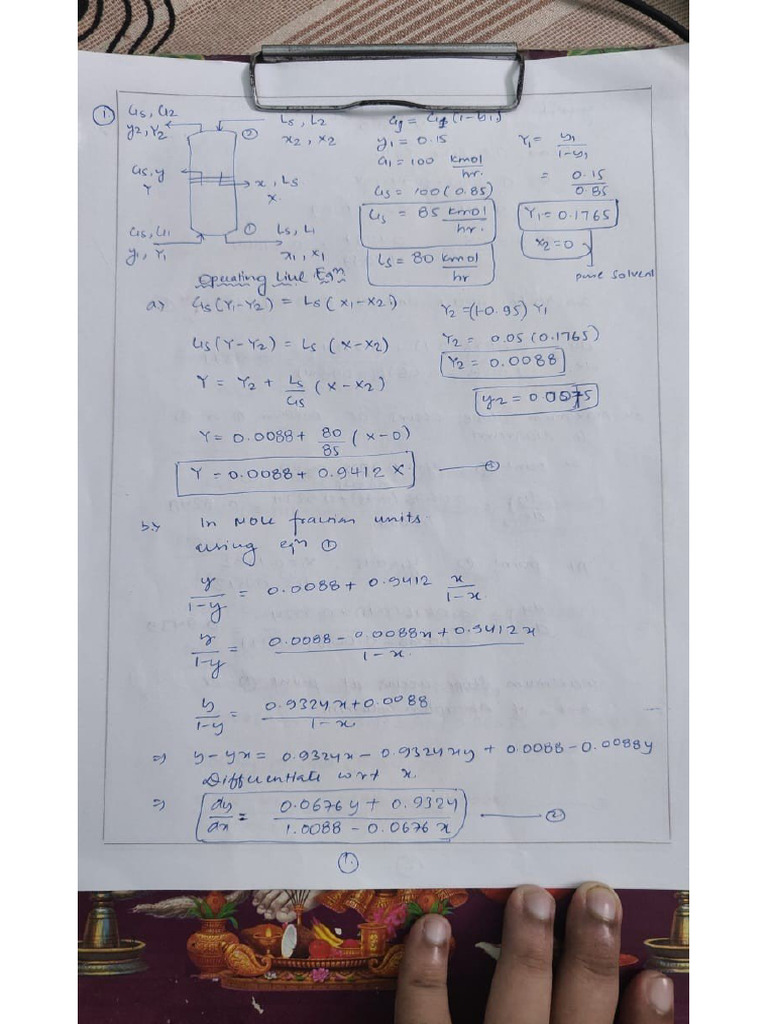 ①
Gs, G2
y2, Y2
Ls, L2
x2, X2
②
Gs, y
Y
x, Ls
X.
Gs, G1
y1, Y1
①
Ls, L1
x1, X1
Gs = G1 (1-y1)
y1 = 0.15
G1 = 100 kmol/hr.
Gs = 100 (0.85)
Gs = 85 kmol/hr.
Ls = 80 kmol/hr
Y1 = y1/1-y1
= 0.15/0.85
Y1 = 0.1765
x2 = 0
pure solvent
Operating Line Eqn
a) Gs (Y1-Y2) = Ls (X1-X2)
Gs (Y-Y2) = Ls (X-X2)
Y = Y2 + Ls/Gs (X-X2)
Y = 0.0088 + 80/85 (X-0)
Y = 0.0088 + 0.9412 X
Y2 = (1-0.95) Y1
Y2 = 0.05 (0.1765)
Y2 = 0.0088
b) In Mole fraction units.
using eqn ①
y/1-y = 0.0088 + 0.9412 x/1-x.
y/1-y = 0.0088 - 0.0088x + 0.9412x/1-x.
y/1-y = 0.9324x + 0.0088/1-x
⇒ y - yx = 0.9324x - 0.9324xy + 0.0088 - 0.0088y
Differentiate wrt x.
⇒ dy/dx = 0.0676y + 0.9324/1.0088 - 0.0676x ②
①